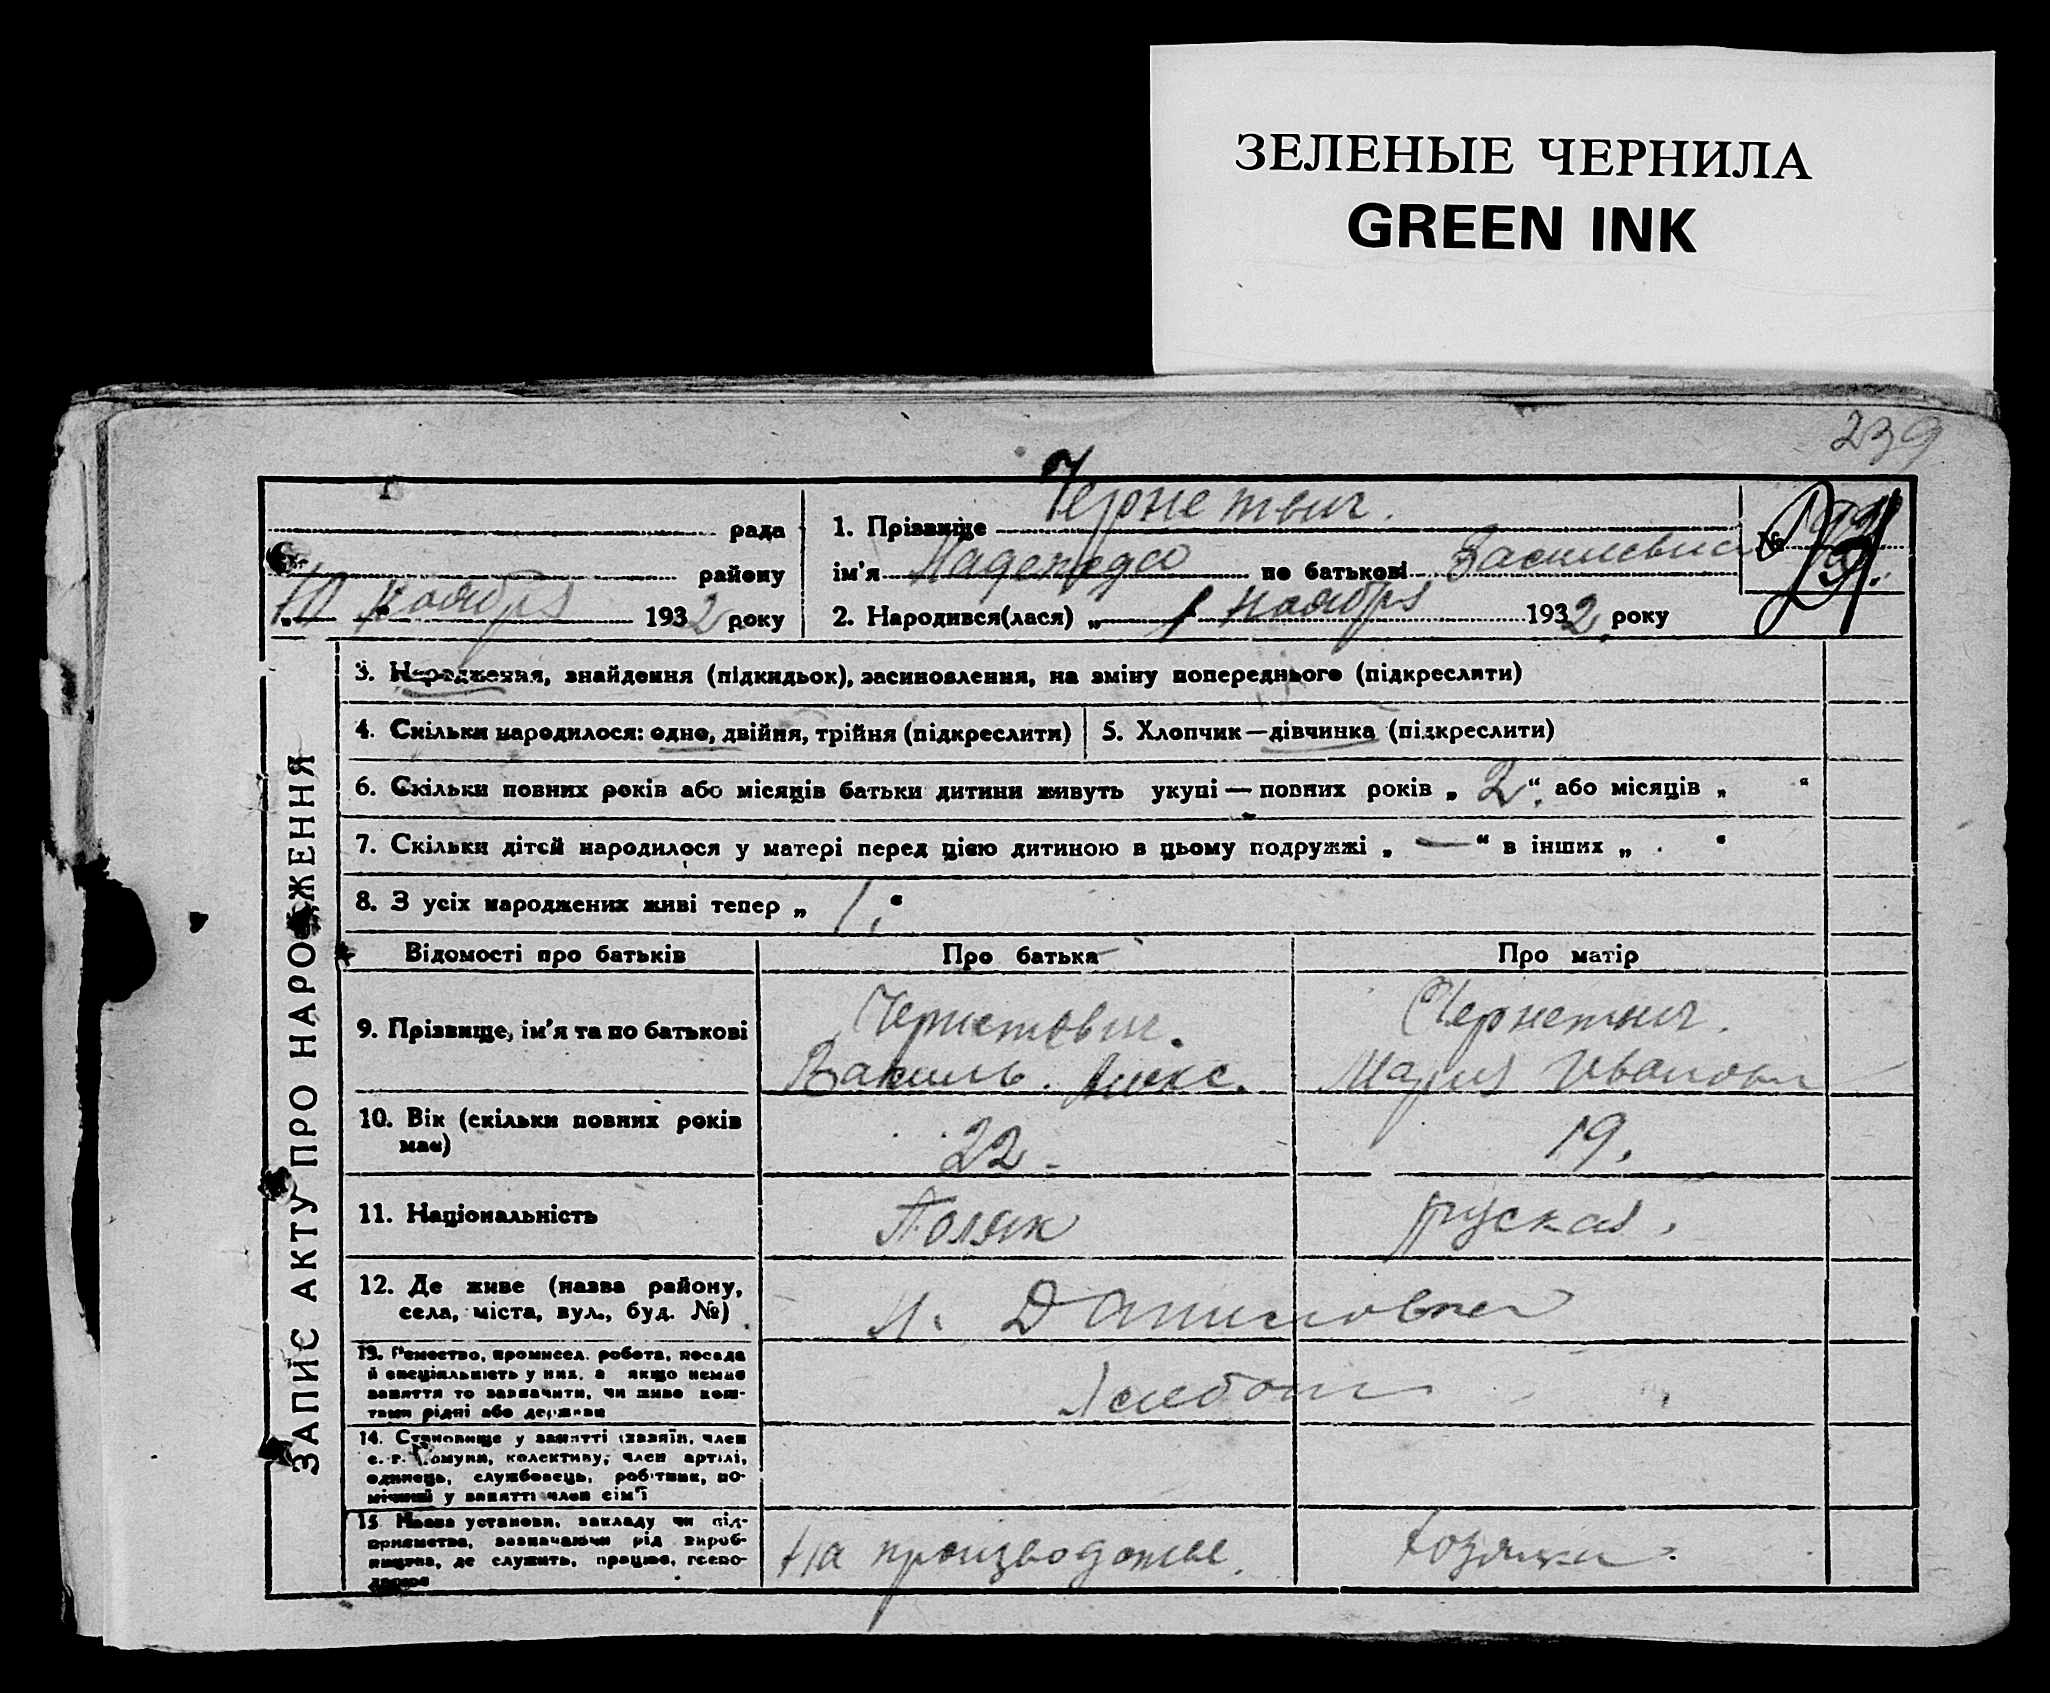 ЗЕЛЕНЫЕ ЧЕРНИЛА
GREEN INK
239
Чернетвич.
рада
1. Прізвище
району
ім'я Надежда по батькові Васильевна №
„10 ноября 1932 року
2. Народився(лася) „1 ноября 1932 року
ЗАПИС АКТУ ПРО НАРОДЖЕННЯ
3. Народження, знайдення (підкидьок), засиновлення, на зміну попереднього (підкреслити)
4. Скільки народилося: одно, двійня, трійня (підкреслити)
5. Хлопчик—дівчинка (підкреслити)
6. Скільки повних років або місяців батьки дитини живуть укупі — повних років „ 2 “ або місяців „ “
7. Скільки дітей народилося у матері перед цією дитиною в цьому подружжі „ — “ в інших „ “
8. З усіх народжених живі тепер „ 1. “
Відомості про батьків
Про батька
Про матір
9. Прізвище, ім'я та по батькові
Чернетвич.
Чернетвич.
Василь. Алекс.
Мария Ивановн
10. Вік (скільки повних років
має)
22.
19.
11. Національність
Поляк
руская.
12. Де живе (назва району,
села, міста, вул., буд. №)
Даниловка
13. Ремество, промисел. робота, посада
й спеціяльність у них, а якщо немає
заняття то зазначити, чи живе кош-
тами рідні або держави
14. Становище у занятті (хазяїн, член
с.-г. комуни, колективу, член артілі,
одинець, службовець, робітник, по-
мічний у занятті член сім'ї
15. Назва установи, закладу чи під-
приємства, зазначаючи рід вироб-
ництва, де служить, працює, госпо-
дарює
На производстве.